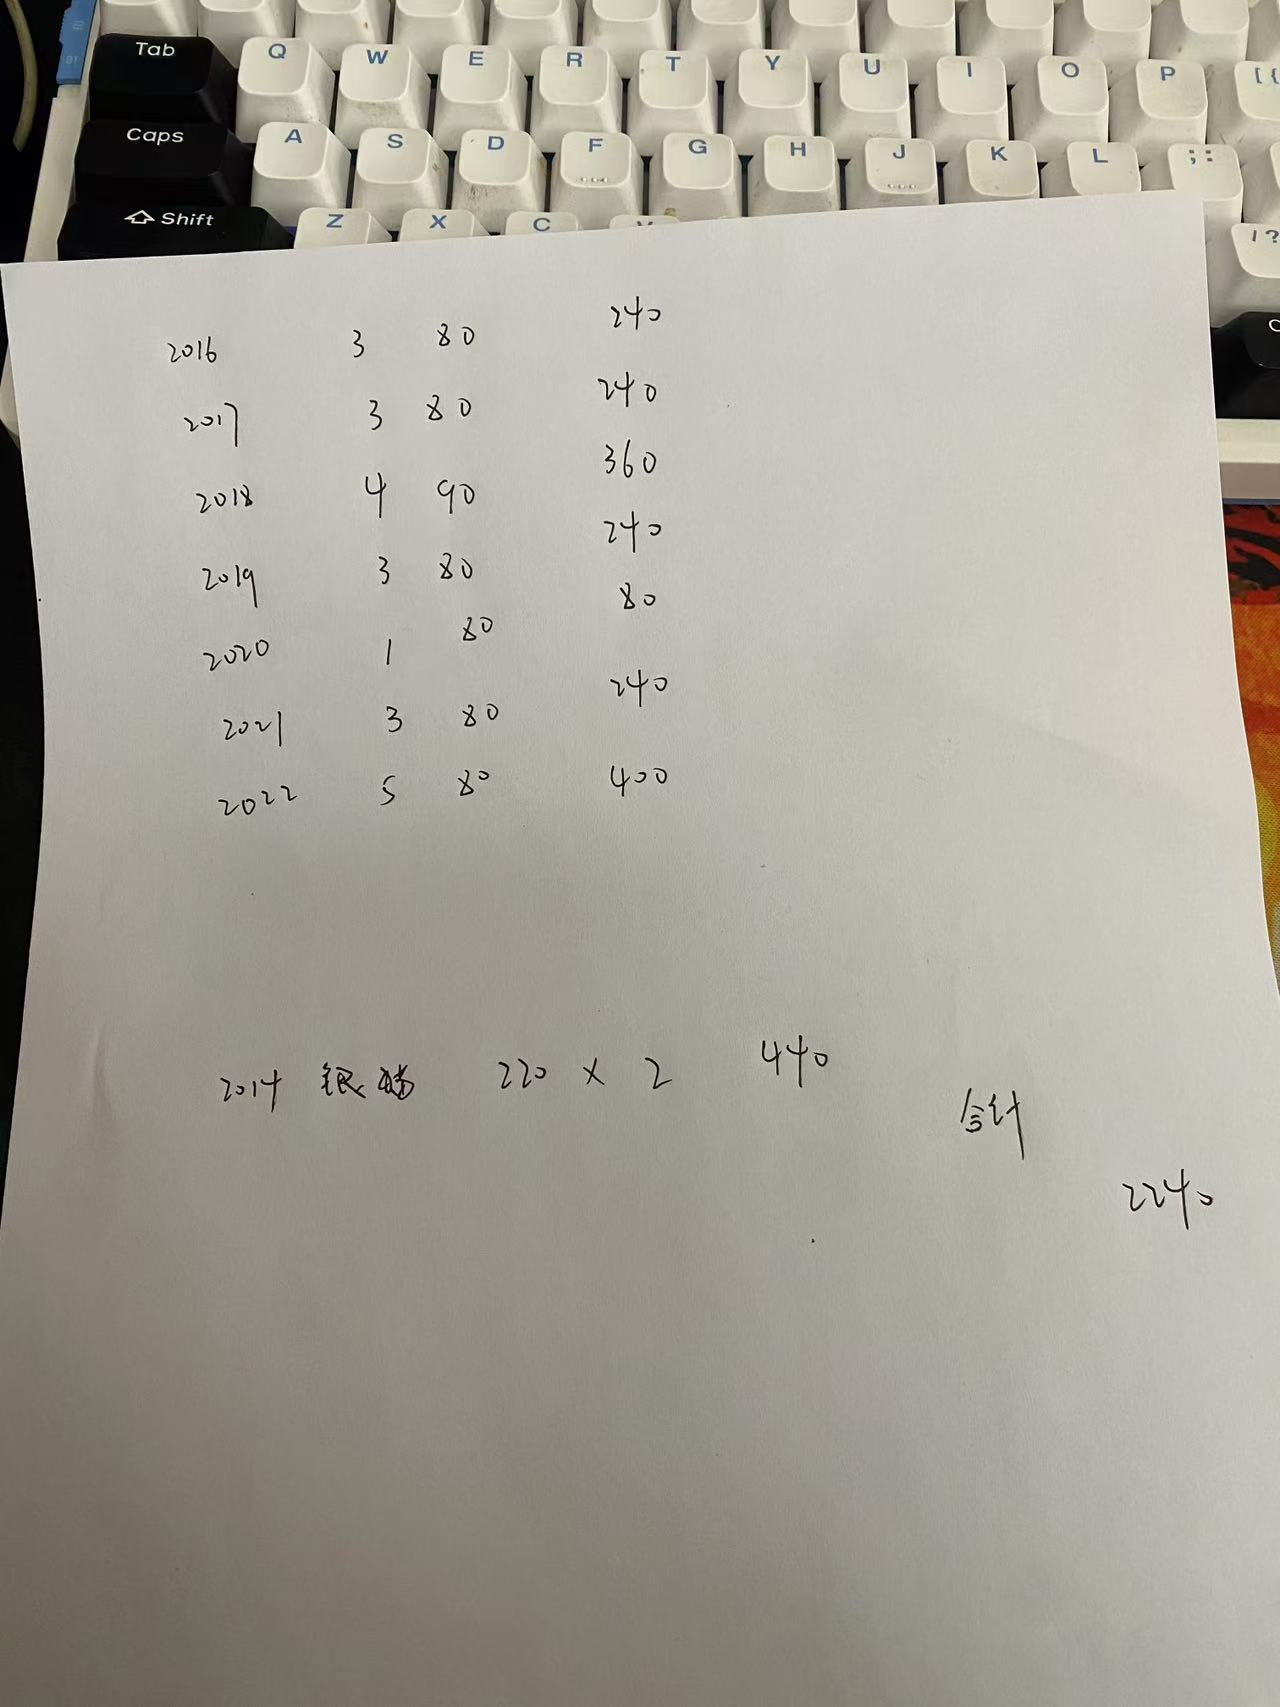 Tab Q W E R T Y U I O P [ {
Caps A S D F G H J K L ; :
Shift Z X C / ?
2016 3 80 240
2017 3 80 240
2018 4 90 360
2019 3 80 240
2020 1 80 80
2021 3 80 240
2022 5 80 400
2014 银 220 x 2 440
合计
2240